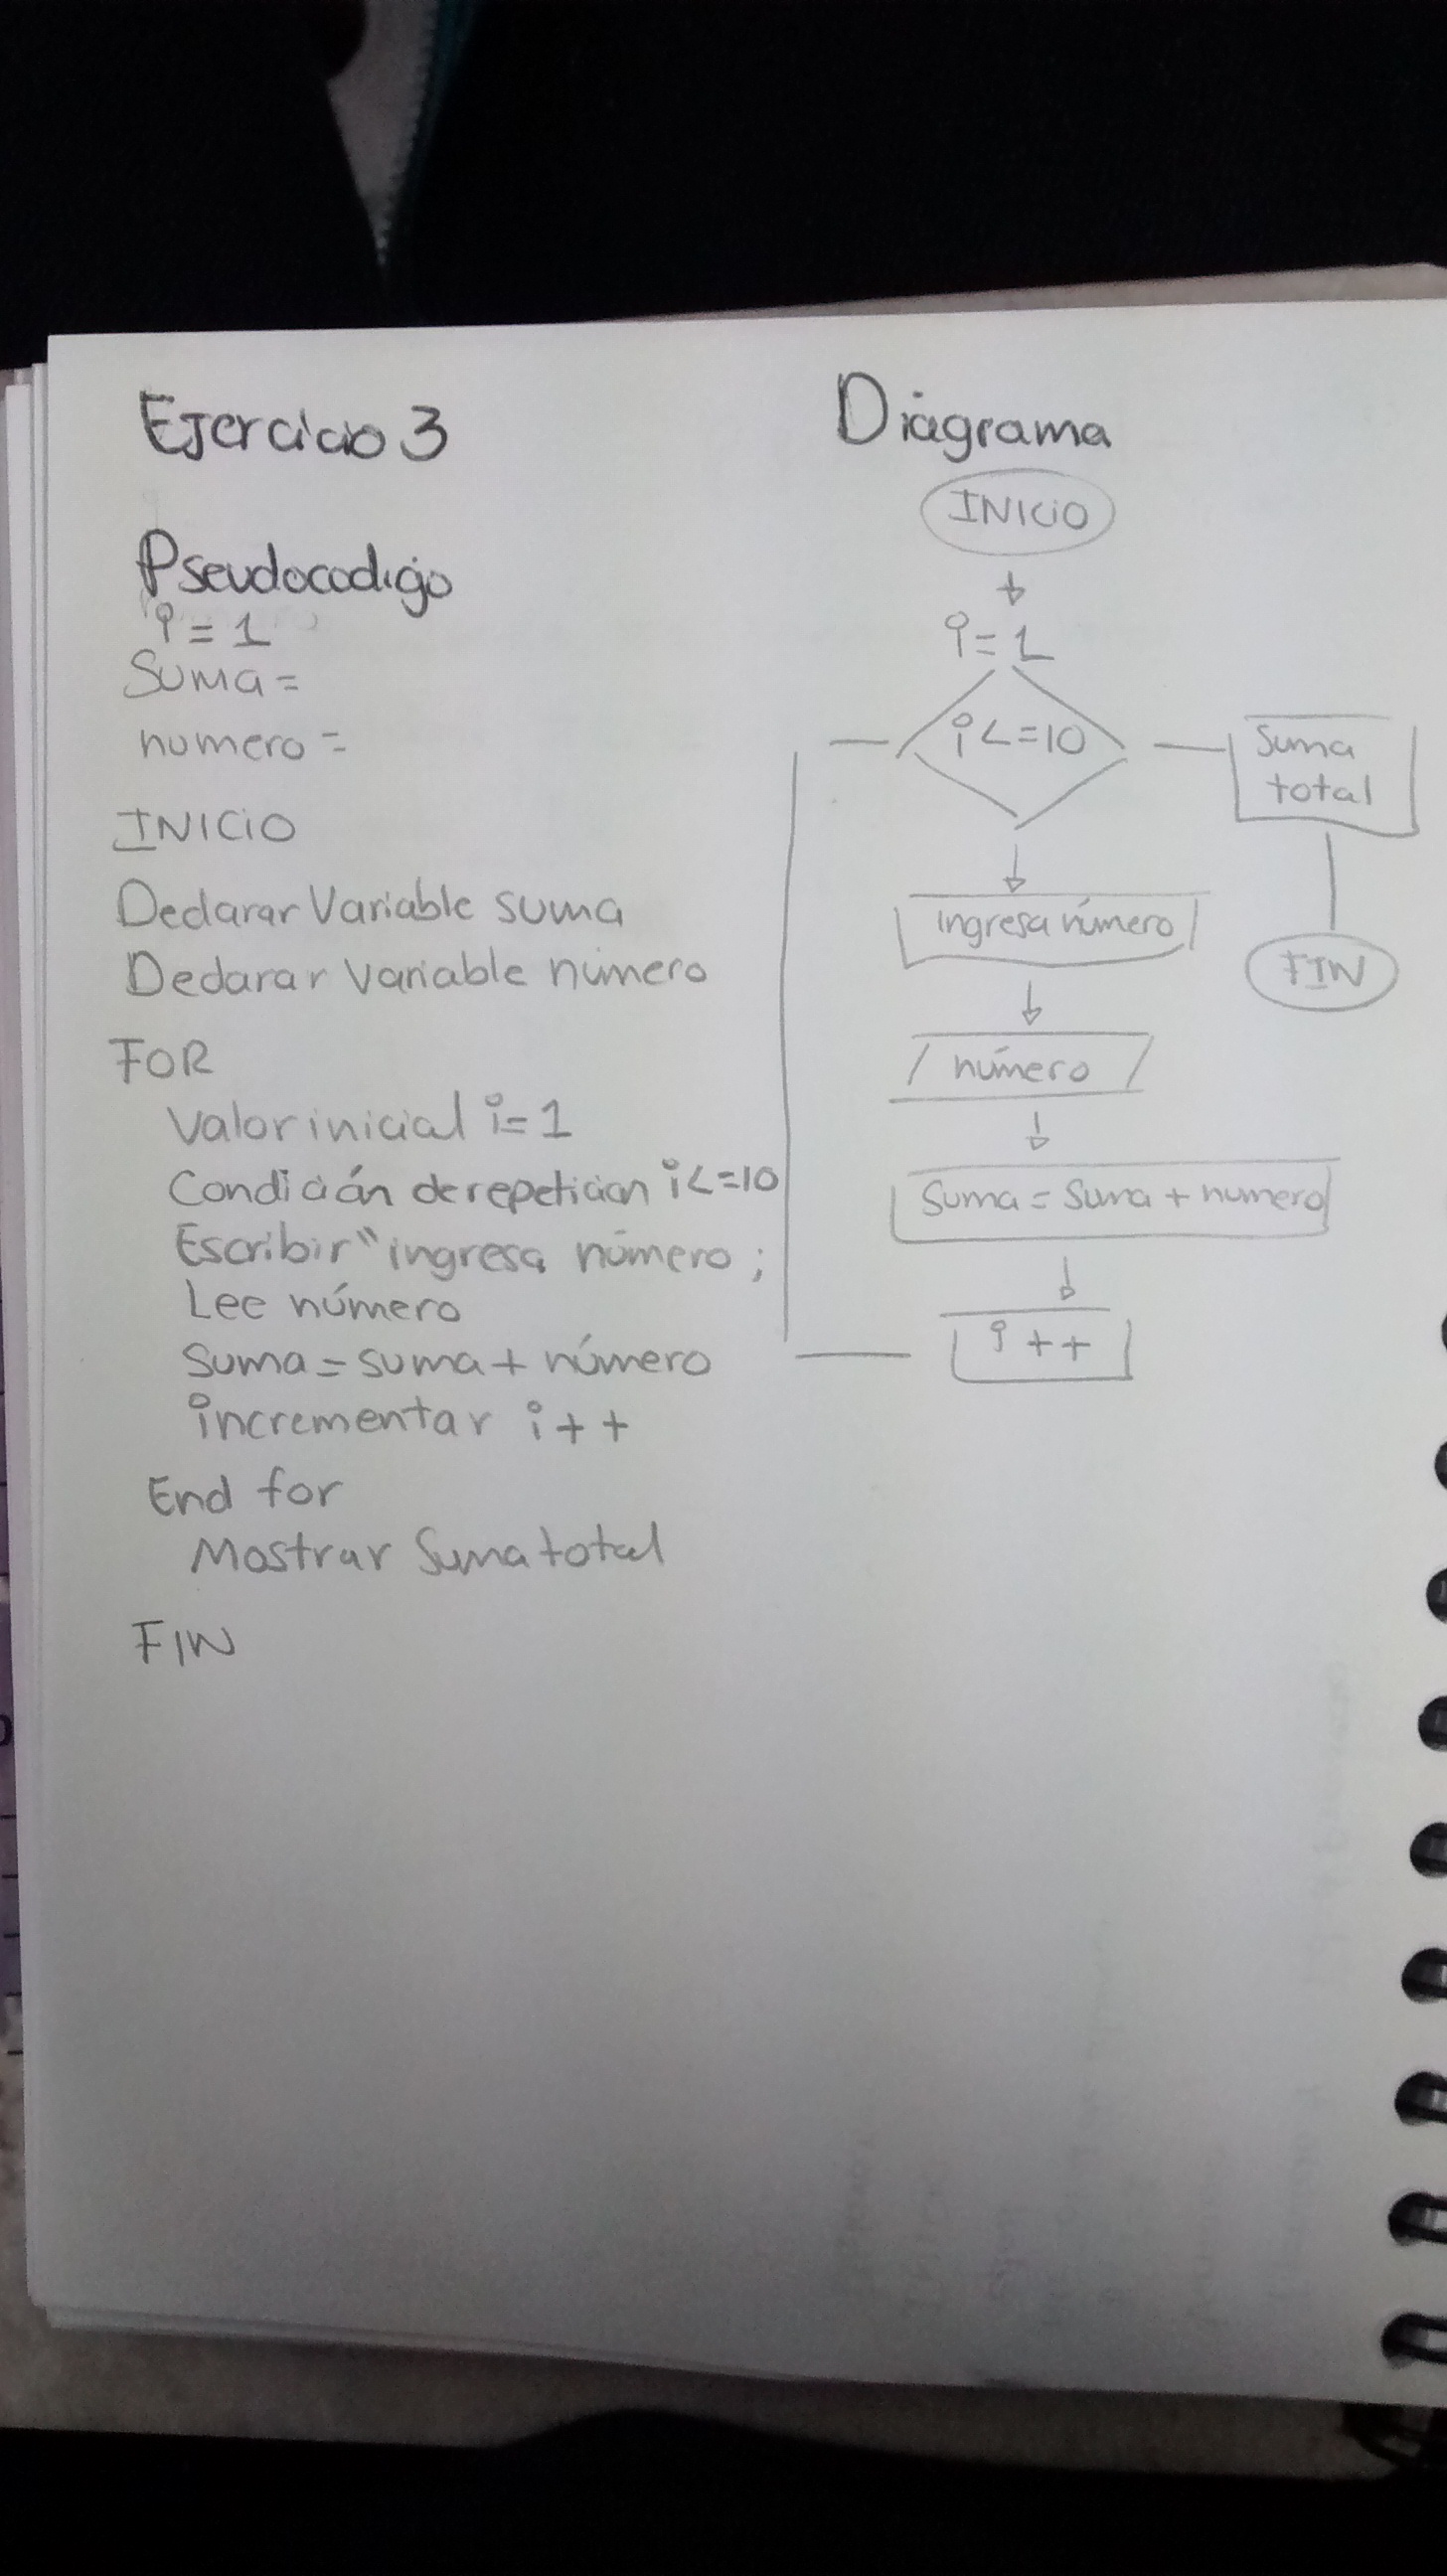 Ejercicio 3
Pseudocodigo
i = 1
Suma =
numero =
INICIO
Declarar Variable suma
Declarar Variable número
FOR
Valor inicial i = 1
Condición de repetición i <= 10
Escribir " ingresa número ;
Lee número
Suma = suma + número
incrementar i + +
End for
Mostrar Suma total
FIN
Diagrama
INICIO
i = 1
i < = 10
Suma
total
Ingresa número
FIN
número
Suma = Suma + numero
i + +